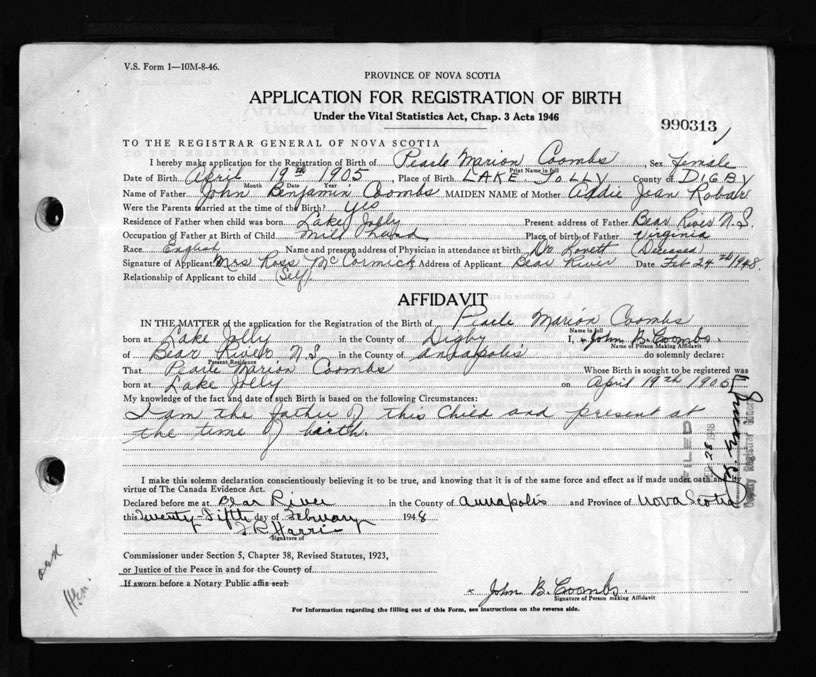 V.S. Form 1—10M-8-46.
PROVINCE OF NOVA SCOTIA
APPLICATION FOR REGISTRATION OF BIRTH
Under the Vital Statistics Act, Chap. 3 Acts 1946
990313
TO THE REGISTRAR GENERAL OF NOVA SCOTIA
I hereby make application for the Registration of Birth of Pearle Marion Coombs, Sex Female
Print Name in full
Date of Birth April 19th 1905, Place of Birth LAKE JOLLY County of DIGBY
Month Date Year
Name of Father John Benjamin Coombs MAIDEN NAME of Mother Addie Joan Robar
Were the Parents married at the time of the Birth? yes
Residence of Father when child was born Lake Jolly Present address of Father Bear River N.S.
Occupation of Father at Birth of Child mill hand Place of birth of Father Virginia
Race English Name and present address of Physician in attendance at birth Dr Lovett (Deceased)
Signature of Applicant Mrs Ross McCormick Address of Applicant Bear River Date Feb 24th/1948.
Relationship of Applicant to child (Self)
AFFIDAVIT
IN THE MATTER of the application for the Registration of the Birth of Pearle Marion Coombs
Name in full
born at Lake Jolly in the County of Digby I, x John B. Coombs.
Name of Person Making Affidavit
of Bear River N.S. in the County of annapolis do solemnly declare:
Present Residence
That Pearle Marion Coombs Whose Birth is sought to be registered was
born at Lake Jolly on April 19th 1905
My knowledge of the fact and date of such Birth is based on the following Circumstances:
I am the father of this child and present at
the time of birth.
FILED
28 1948
Deputy Registrar General
I make this solemn declaration conscientiously believing it to be true, and knowing that it is of the same force and effect as if made under oath
virtue of The Canada Evidence Act.
Declared before me at Bear River in the County of annapolis and Province of Nova Scotia
this Twenty-Fifth day of February 1948
Signature of
Commissioner under Section 5, Chapter 38, Revised Statutes, 1923,
or Justice of the Peace in and for the County of
If sworn before a Notary Public affix seal.
x John B. Coombs.
Signature of Person making Affidavit
For Information regarding the filling out of this Form, see Instructions on the reverse side.